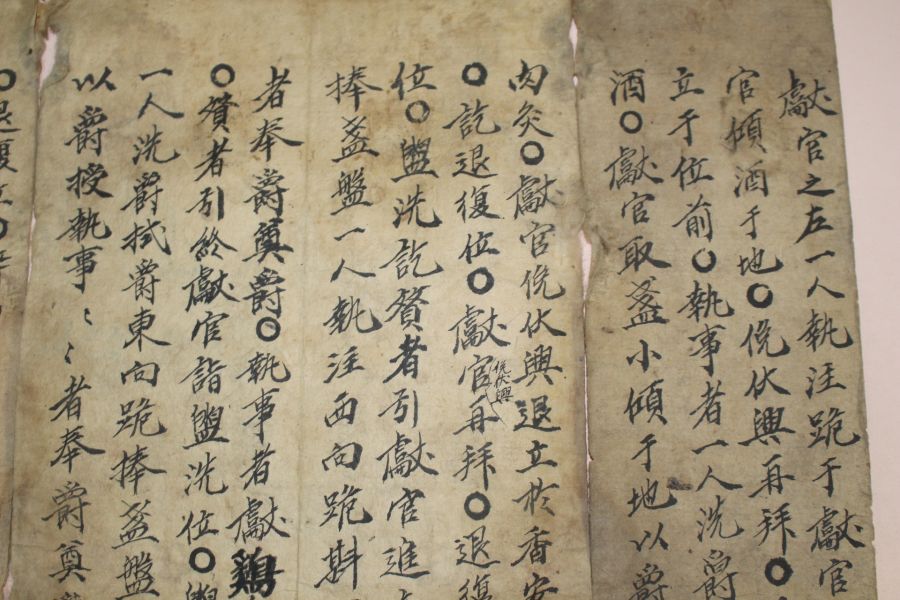 獻官之左一人執注跪于獻官
官傾酒于地○俛伏興再拜○
立于位前○執事者一人洗爵
酒○獻官取盞小傾于地以爵
肉炙○獻官俛伏興退立於香案
○訖退復位○獻官俛伏興再拜○退復
位○盥洗訖贊者引獻官進
捧盞盤一人執注西向跪斟
者奉爵奠爵○執事者獻鷄
○贊者引終獻官詣盥洗位○
一人洗爵拭爵東向跪捧盞盤
以爵授執事〻〻者奉爵奠
○退復位○